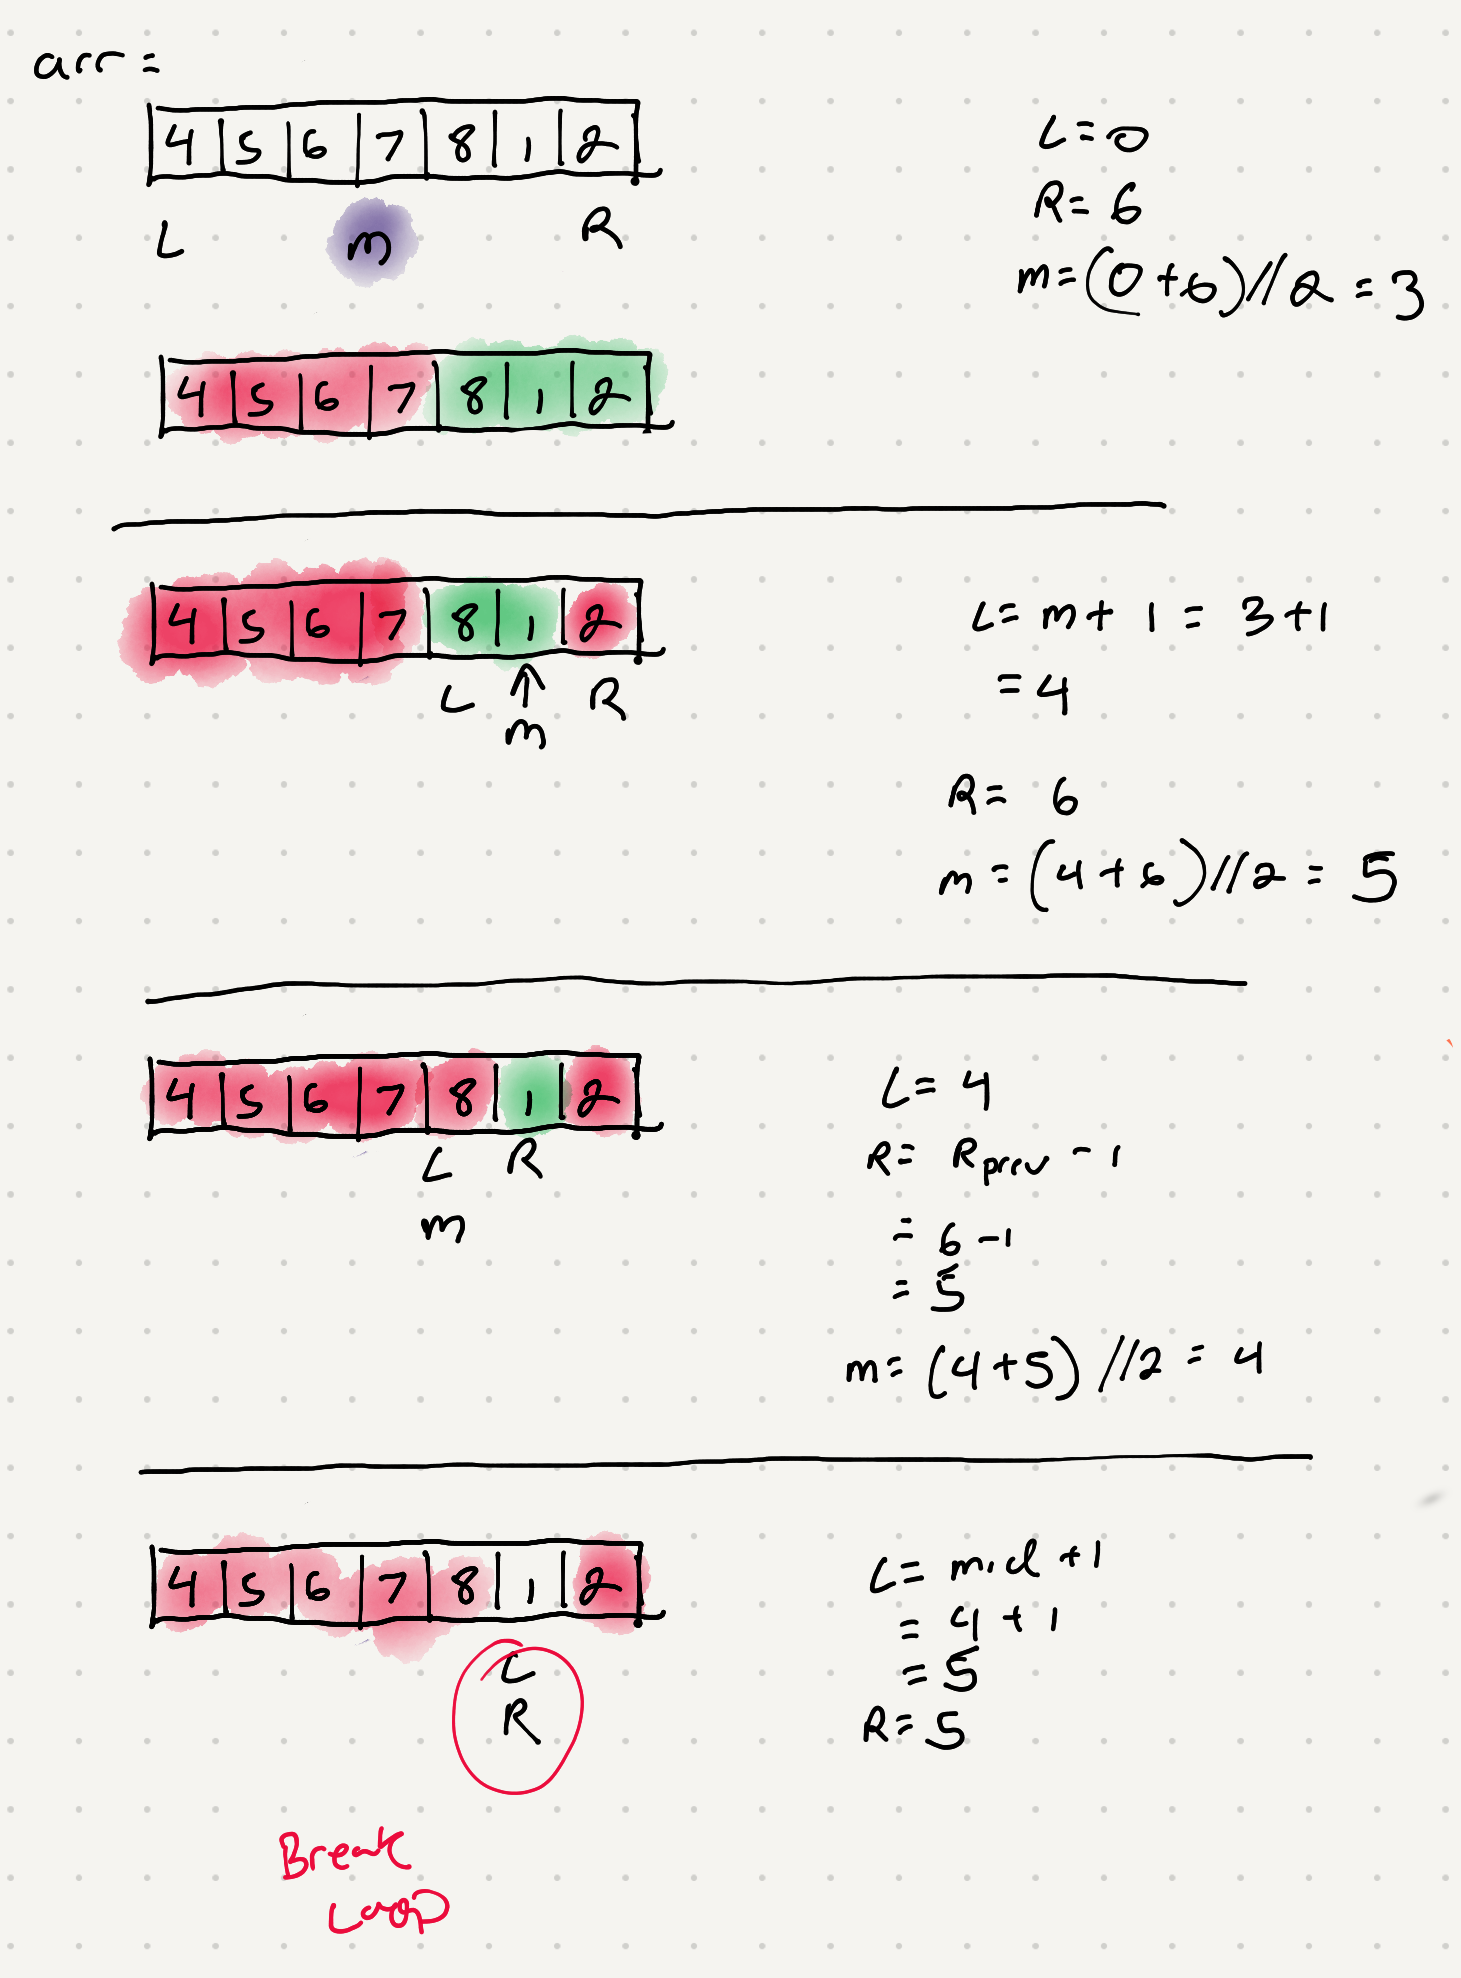 arr =
4 5 6 7 8 1 2
L m R
L = 0
R = 6
m = (0 + 6) // 2 = 3
4 5 6 7 8 1 2
4 5 6 7 8 1 2
L ↑ R
m
L = m + 1 = 3 + 1
= 4
R = 6
m = (4 + 6) // 2 = 5
4 5 6 7 8 1 2
L R
m
L = 4
R = Rprev - 1
= 6 - 1
= 5
m = (4 + 5) // 2 = 4
4 5 6 7 8 1 2
L
R
L = mid + 1
= 4 + 1
= 5
R = 5
Break
Loop